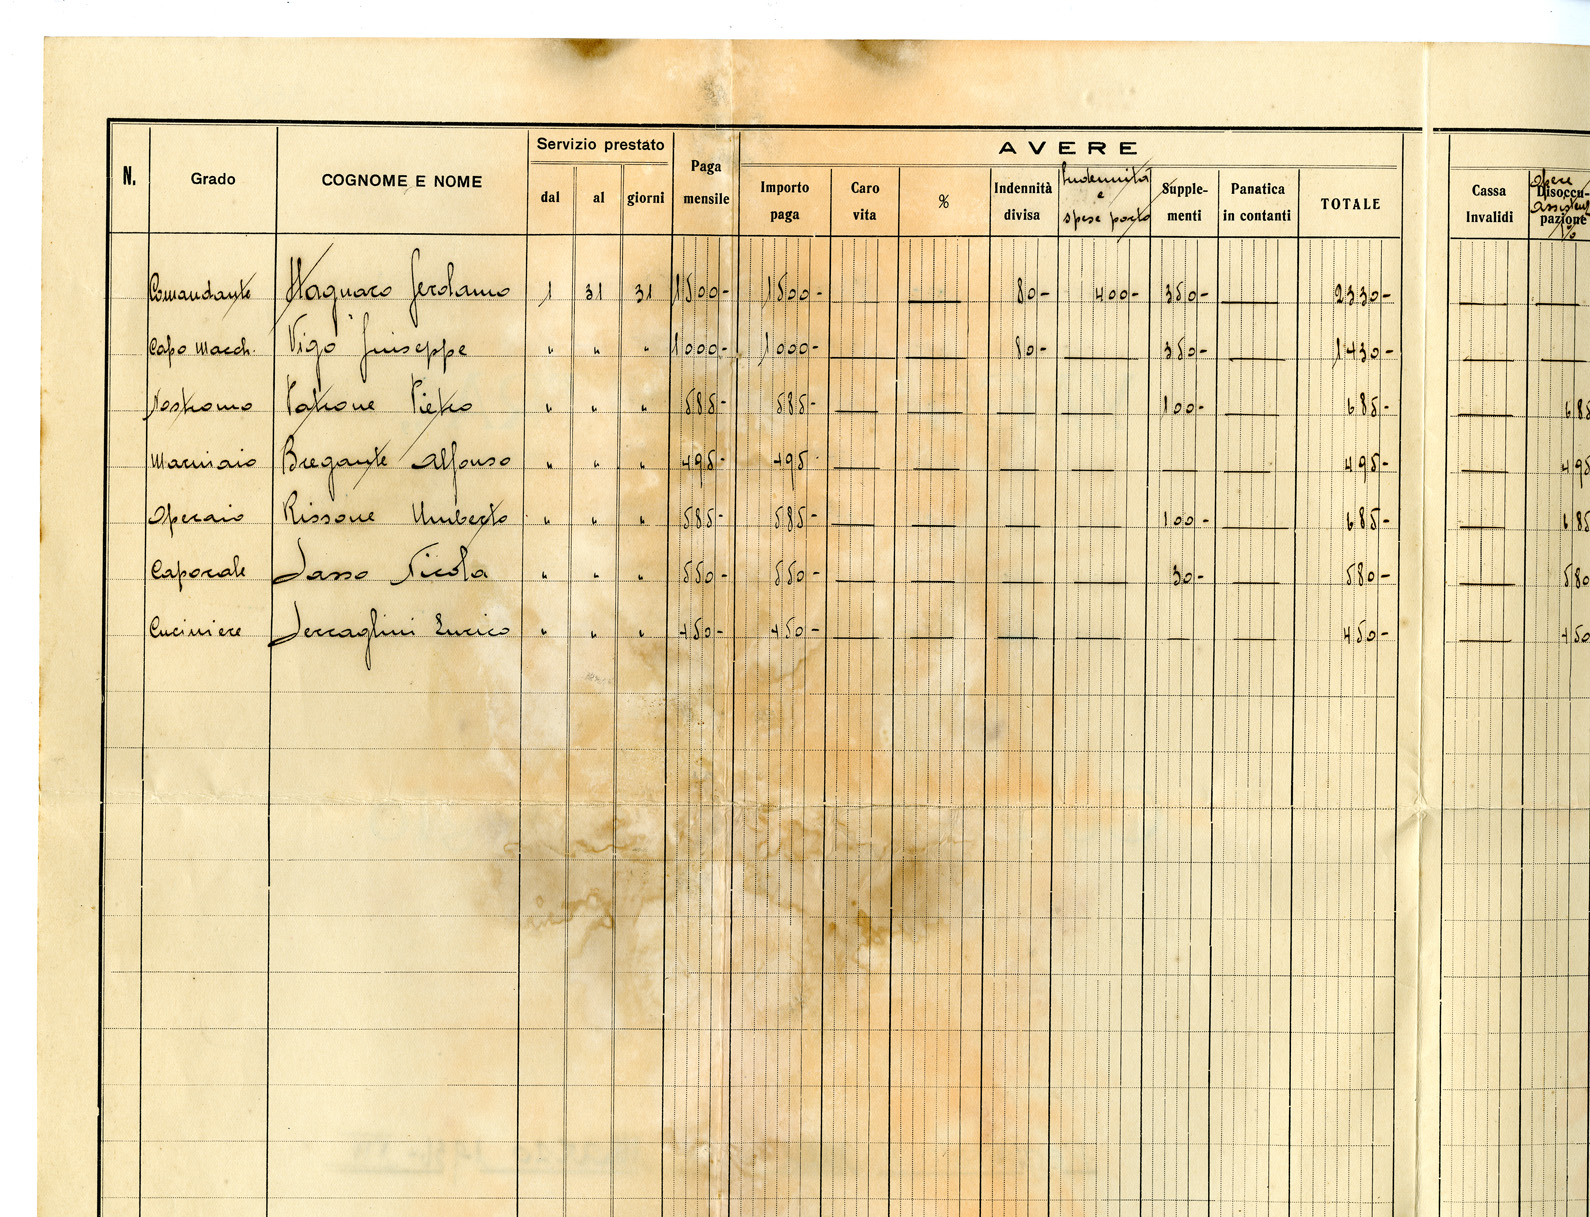 AVERE
N. Grado COGNOME E NOME Servizio prestato dal al giorni Paga mensile Importo paga Caro vita % Indennità divisa Indennità e spese posto Supplementi Panatica in contanti TOTALE Cassa Invalidi Opere assistenz % Disoccupazione
Comandante Stagnaro Gerolamo 1 31 31 1500- 1500- — — 80- 400- 350- — 2330- — —
Capo Macch. Vigo Giuseppe " " " 1000- 1000- — — 80- — 350- — 1430- — —
Nostromo Patrone Pietro " " " 585- 585- — — — — 100- — 685- — 685
Marinaio Bregante Alfonso " " " 495- 495- — — — — — — 495- — 495
Operaio Rissone Umberto " " " 585- 585- — — — — 100- — 685- — 685
Caporale Sasso Nicola " " " 550- 550- — — — — 30- — 580- — 580
Cuciniere Serraglini Enrico " " " 450- 450- — — — — — — 450- — 450